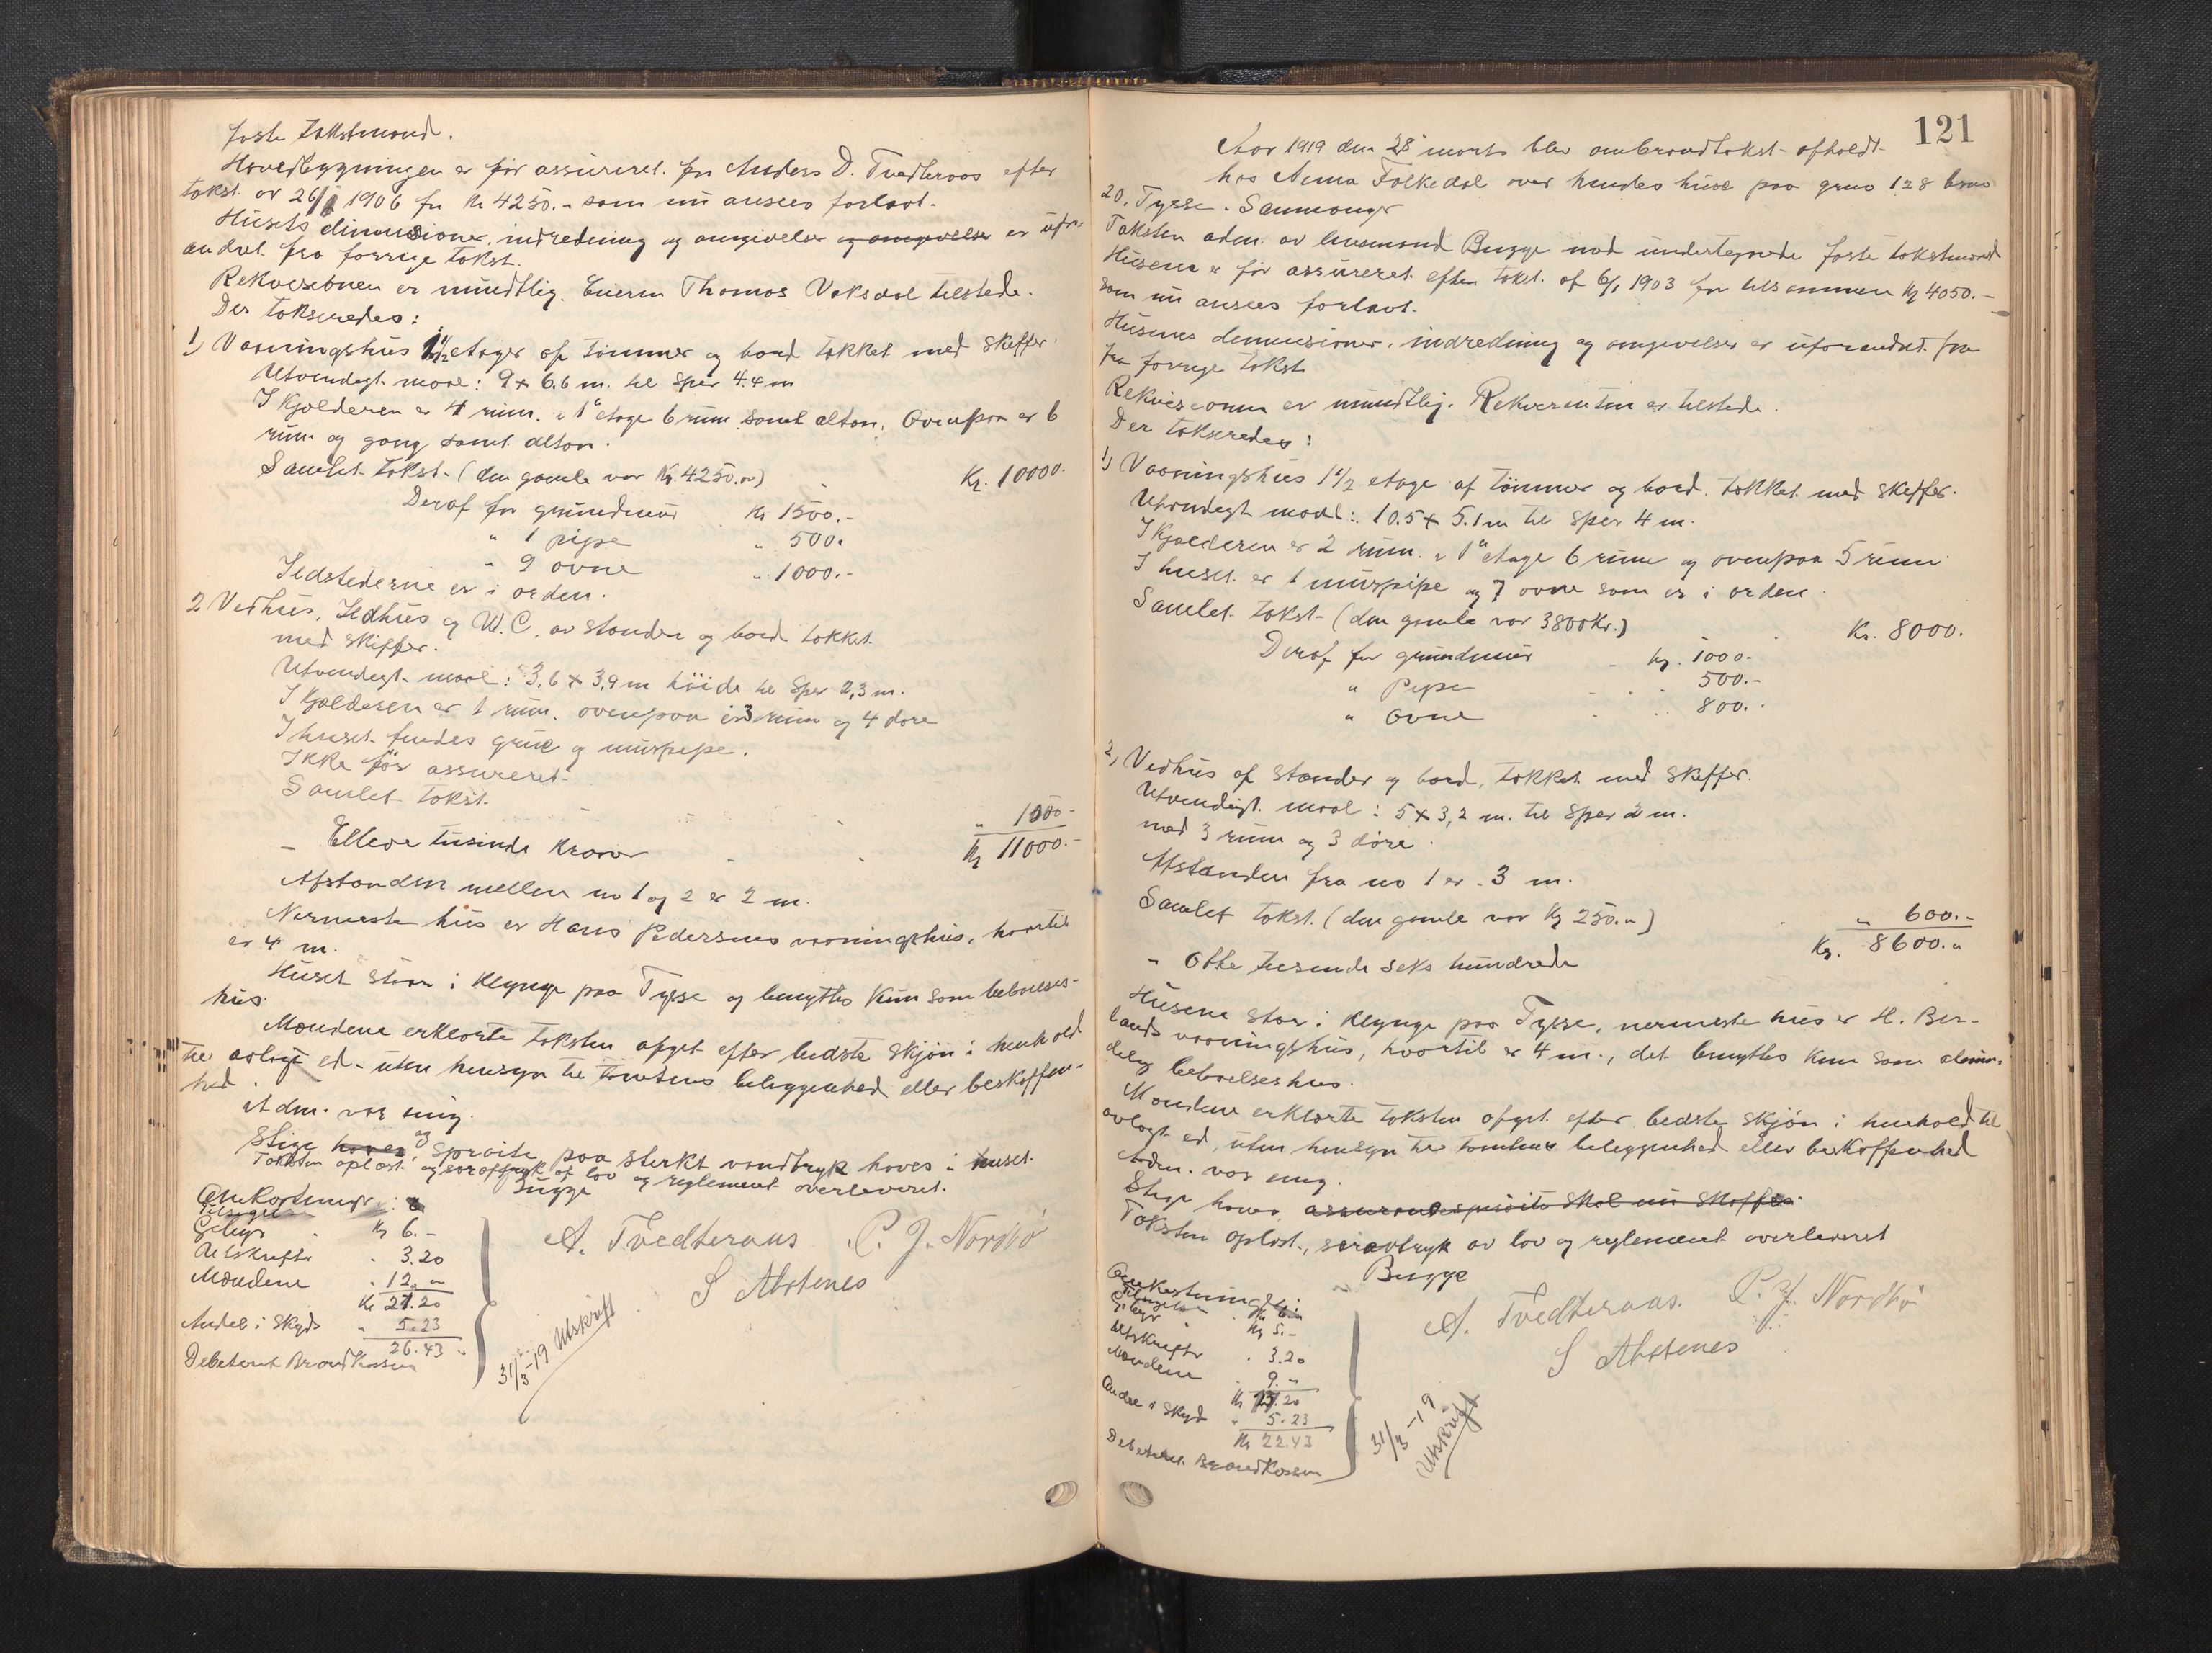 faste takstmænd.
Hovedbygningen er før assureret for Anders D. Tvedteraas efter
takst av 26/1 1906 for kr 4250.- som nu ansees forlavt.
Husets dimensioner, indredning og omgivelser og omgivelser er ufor-
andret fra forrige takst.
Rekvisitionen er mundtlig. Eieren Thomas Vaksdal tilstede.
Der takseredes:
1) Vaaningshus 1 1/2 etager af tømmer og bord takket med skiffer.
Utvendigt maal: 9 x 6.6 m. til sper 4.4 m
I kjælderen er 4 rum. i 1ste etage 6 rum samt altan, Ovenpaa er 6
rum og gang samt altan.
Samlet takst. (den gamle var Kr. 4250.") Kr. 10000.
Deraf for grundmur kr 1500.-
" 1 pipe " 500.
" 9 ovne " 1000.-
Ildstederne er i orden.
2 Vedhus, Ildhus og W.C. av stander og bord takket
med skiffer.
Utvendigt maal: 3,6 x 3,9 m høide til sper 2,3 m.
I kjælderen er 1 rum. ovenpaa er 3 rum og 4 døre
I huset findes grue og murpipe.
Ikke før assureret.
Samlet takst. " 1000-
- Elleve tusinde kroner Kr 11000.-
Afstanden mellem no 1 og 2 er 2 m.
Nermeste hus er Hans Pedersens vaaningshus, hvortil
er 4 m.
Huset staar i klynge paa Tysse og benyttes kun som beboelses-
hus.
Mændene erklærte taksten afget efter bedste skjøn i henhold
til avlagt ed - uten hensyn til tomtens beliggenhed eller beskaffen-
hed.
Adm. var enig.
Stige haves og sprøite paa sterkt vandtryk haves i huset.
Taksten oplæst. og særaftryk af lov og reglement overleveret.
Bugge
Omkostninger:
Tilsigelse
Gebyr kr 6.-
Utskrifter " 3.20
Mændene " 12."
Kr 21.20
Andel i skyds " 5.23
26.43
Debeteret Brandkassen
A. Tvedteraas P. J. Nordbø
S Alstenes
31/3-19 Utskrift
121
Aar 1919 den 28 marts blev ombrandtakst afholdt
hos Anna Folkedal over hendes huse paa gnrs 128 brnr
20. Tysse. Samnanger
Taksten adm. av lensmand Bugge med undertegnede faste takstmænd
Husene er før assureret efter takst. af 6/1 1903 for tilsammen kr 4050.-
som nu ansees forlavt.
Husenes dimensioner, indredning og omgivelser er uforandret fra
fra forrige takst
Rekvisisionen er mundtlig. Rekvirentin er tilstede.
Der takseredes:
1) Vaaningshus 1 1/2 etage af tømmer og bord. takket med skiffer.
Utvendigt maal: 10.5 x 5.1 m til sper 4 m.
I kjælderen er 2 rum. i 1ste etage 6 rum og ovenpaa 5 rum
I huset er 1 murpipe og 7 ovne som er i orden.
Samlet takst- (den gamle var 3800 Kr.) Kr. 8000.
Deraf for grundmur kr. 1000-
" Pipe 500.-
" Ovne 800.
2) Vedhus af stander og bord, takket med skiffer.
Utvendigt maal: 5 x 3,2 m. til sper 2 m.
med 3 rum og 3 døre.
Afstanden fra no 1 er 3 m.
Samlet takst. (den gamle var kr 250.") " 600.-
Kr. 8600."
- Otte tusende seks hundrede
Husene staar i klynge paa Tysse, nermeste hus er H. Ber-
lands vaaningshus, hvortil er 4 m., det benyttes kun som almin-
delig beboelseshus.
Mændene erklærte taksten afget. efter bedste skjøn i henhold til
avlagt ed, uten hensyn til tomtens beliggenhed eller beskaffenhed
Adm. var enig.
Stige haves, assurancesprøite skal nu skaffes.
Taksten oplæst, særavtryk av lov og reglement overleveret
Bugge
Omkostninger:
Tilsigelse
Gebyr kr 5.-
Utskrifter " 3.20
Mændene " 9.-
Kr 17.20
Andel i skyds " 5.23
Kr 22.43
Debeteret Brandkassen
A. Tvedteraas. P. J. Nordbø
S Alstenes
31/3-19
Utskrift